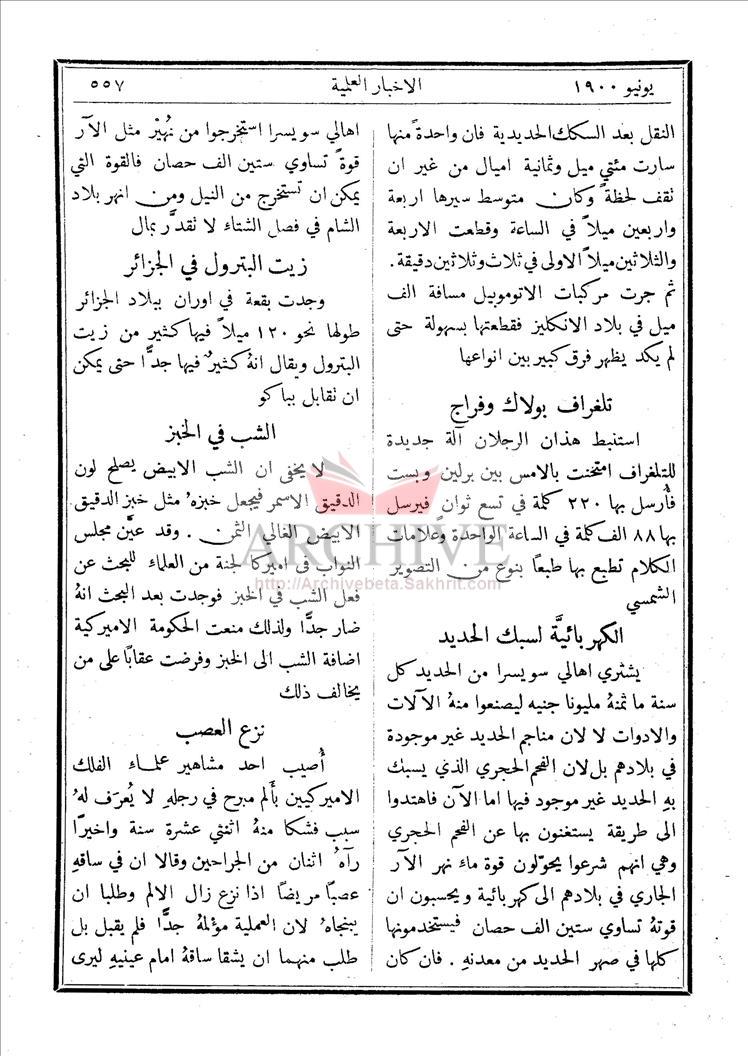 يونيو ١٩٠٠
الاخبار العلمية
٥٥٧
النقل بعد السكك الحديدية فان واحدةً منها
سارت مئتي ميل وثمانية اميال من غير ان
تقف لحظةً وكان متوسط سيرها اربعة
واربعين ميلاً في الساعة وقطعت الاربعة
والثلاثين ميلاً الاولى في ثلاث وثلاثين دقيقة.
ثم جرت مركبات الاتوموبيل مسافة الف
ميل في بلاد الانكليز فقطعتها بسهولة حتى
لم يكد يظهر فرق كبير بين انواعها
تلغراف بولاك وفراج
استنبط هذان الرجلان آلة جديدة
للتلغراف امتحنت بالامس بين برلين وبست
فأُرسل بها ٢٢٠ كلمة في تسع ثوانٍ فيرسل
بها ٨٨ الف كلمة في الساعة الواحدة وعلامات
الكلام تطبع بها طبعاً بنوع من التصوير
الشمسي
الكهربائيَّة لسبك الحديد
يشتري اهالي سويسرا من الحديد كل
سنة ما ثمنهُ مليونا جنيه ليصنعوا منهُ الآلات
والادوات لا لان مناجم الحديد غير موجودة
في بلادهم بل لان الفحم الحجري الذي يسبك
بهِ الحديد غير موجود فيها اما الآن فاهتدوا
الى طريقة يستغنون بها عن الفحم الحجري
وهي انهم شرعوا يحوّلون قوة ماء نهر الآر
الجاري في بلادهم الى كهربائية ويحسبون ان
قوتهُ تساوي ستين الف حصان فيستخدمونها
كلها في صهر الحديد من معدنهِ . فان كان
اهالي سويسرا استخرجوا من نُهَيْر مثل الآر
قوةً تساوي ستين الف حصان فالقوة التي
يمكن ان تستخرج من النيل ومن انهر بلاد
الشام في فصل الشتاء لا تقدَّر بمال
زيت البترول في الجزائر
وجدت بقعة في اوران ببلاد الجزائر
طولها نحو ١٢٠ ميلاً فيها كثير من زيت
البترول ويقال انهُ كثيرٌ فيها جدًّا حتى يمكن
ان تقابل بباكو
الشب في الخبز
لا يخفى ان الشب الابيض يصلح لون
الدقيق الاسمر فيجعل خبزهُ مثل خبز الدقيق
الابيض الغالي الثمن . وقد عيَّن مجلس
النواب في اميركا لجنة من العلماء للبحث عن
فعل الشب في الخبز فوجدت بعد البحث انهُ
ضار جدًّا ولذلك منعت الحكومة الاميركية
اضافة الشب الى الخبز وفرضت عقابًا على من
يخالف ذلك
نزع العصب
أُصيب احد مشاهير علماء الفلك
الاميركيين بأَلم مبرح في رجلهِ لا يُعرَف لهُ
سبب فشكا منهُ اثنتي عشرة سنة واخيرًا
رآهُ اثنان من الجراحين وقالا ان في ساقهِ
عصبًا مريضًا اذا نزع زال الالم وطلبا ان
يبنجاهُ لان العملية مؤلمةٌ جدًّا فلم يقبل بل
طلب منهما ان يشقا ساقهُ امام عينيهِ ليرى
ARCHIVE
http://Archivebeta.Sakhrit.com